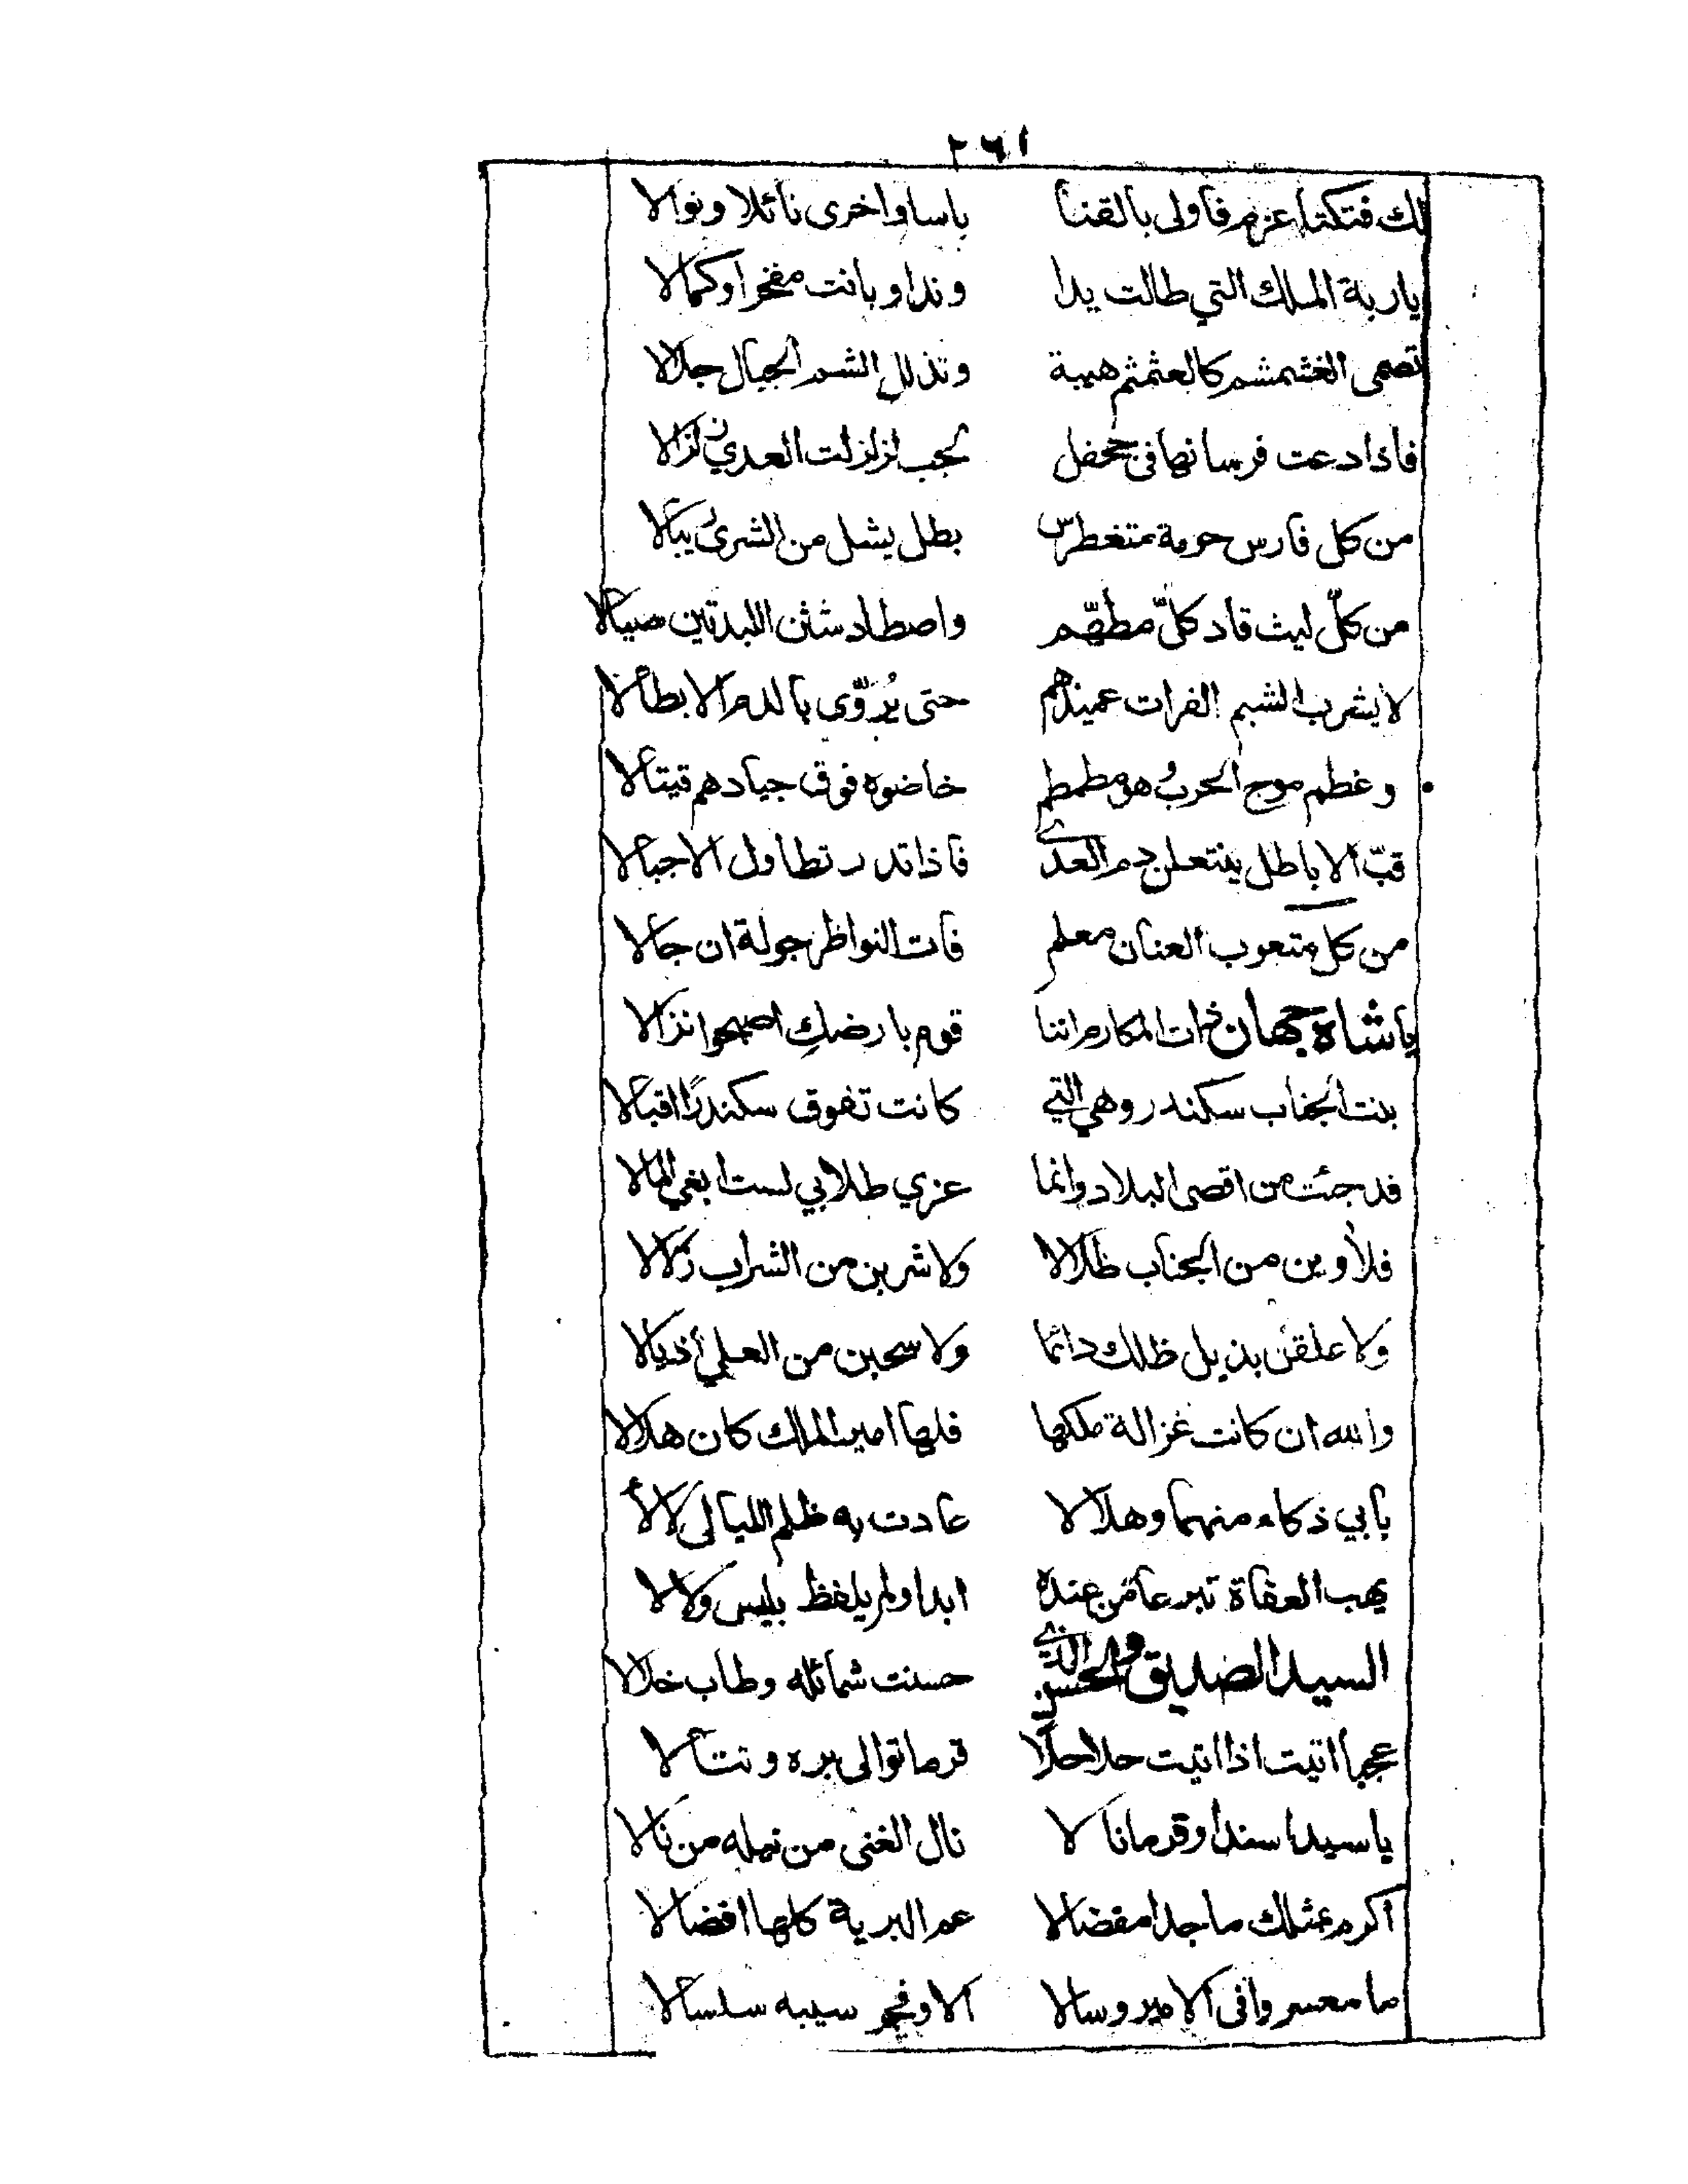 ٢٦١
لك فتكتا عزم فاولى بالقنا باسا واخرى نائلا ونوالا
ياربة الملك التي طالت يدا وندا وبانت مفخرا وكمالا
تصمى الغشمشم كالعثمثم هيبة وتذلل الشم الجبال جلالا
فاذا دعت فرسانها في جحفل لجب لزلزلت العدى زلزالا
من كل فارس حومة متغطرس بطل يشل من الشرى ريبالا
من كلّ ليث قاد كلّ مطهّم واصطاد شثن اللبدتين صيالا
لا يشرب الشبم الفرات عميدهم حتى يُروّى بالدم الابطالا
وغطم موج الحرب وهو مطمطم خاضوه فوق جيادهم قيتالا
قبّ الاباطل ينتعلن دم العدى فاذا تدر تطاول الاجبالا
من كل متعوب العنان معلم فات النواظر جولة ان جالا
ياشاه جهان ذات المكارم اننا قوم بارضكِ اصبحوا نزالا
بنت الجناب سكندر وهي التي كانت تفوق سكندرًا اقبالا
قد جئت من اقصى البلاد وانما عزي طلابي لست ابغي المالا
فلأوين من الجناب ظلالا ولاشربن من الشراب زلالا
ولاعلقن بذيل ظلك دائما ولاسحبن من العلي أذيالا
والله ان كانت غزالة ملكها فلها امير الملك كان هلالا
بابي ذكاء منهما وهلالا عادت به ظلم الليالى لالأ
يهب العفاة تبرعا من عنده ابدا ولم يلفظ بليس ولا لا
السيد الصديق والحسن الذي حسنت شمائله وطاب خلالا
عجبا اتيت اذا اتيت حلاحلا قرما توالى بره وتتالا
ياسيدا سندا وقرما نالا نال الغنى من نيله من نالا
اكرم بمثلك ماجدا مفضالا عم البرية كلها افضالا
ما معسر وافى الامير وسالا الا وفجر سيبه سلسالا